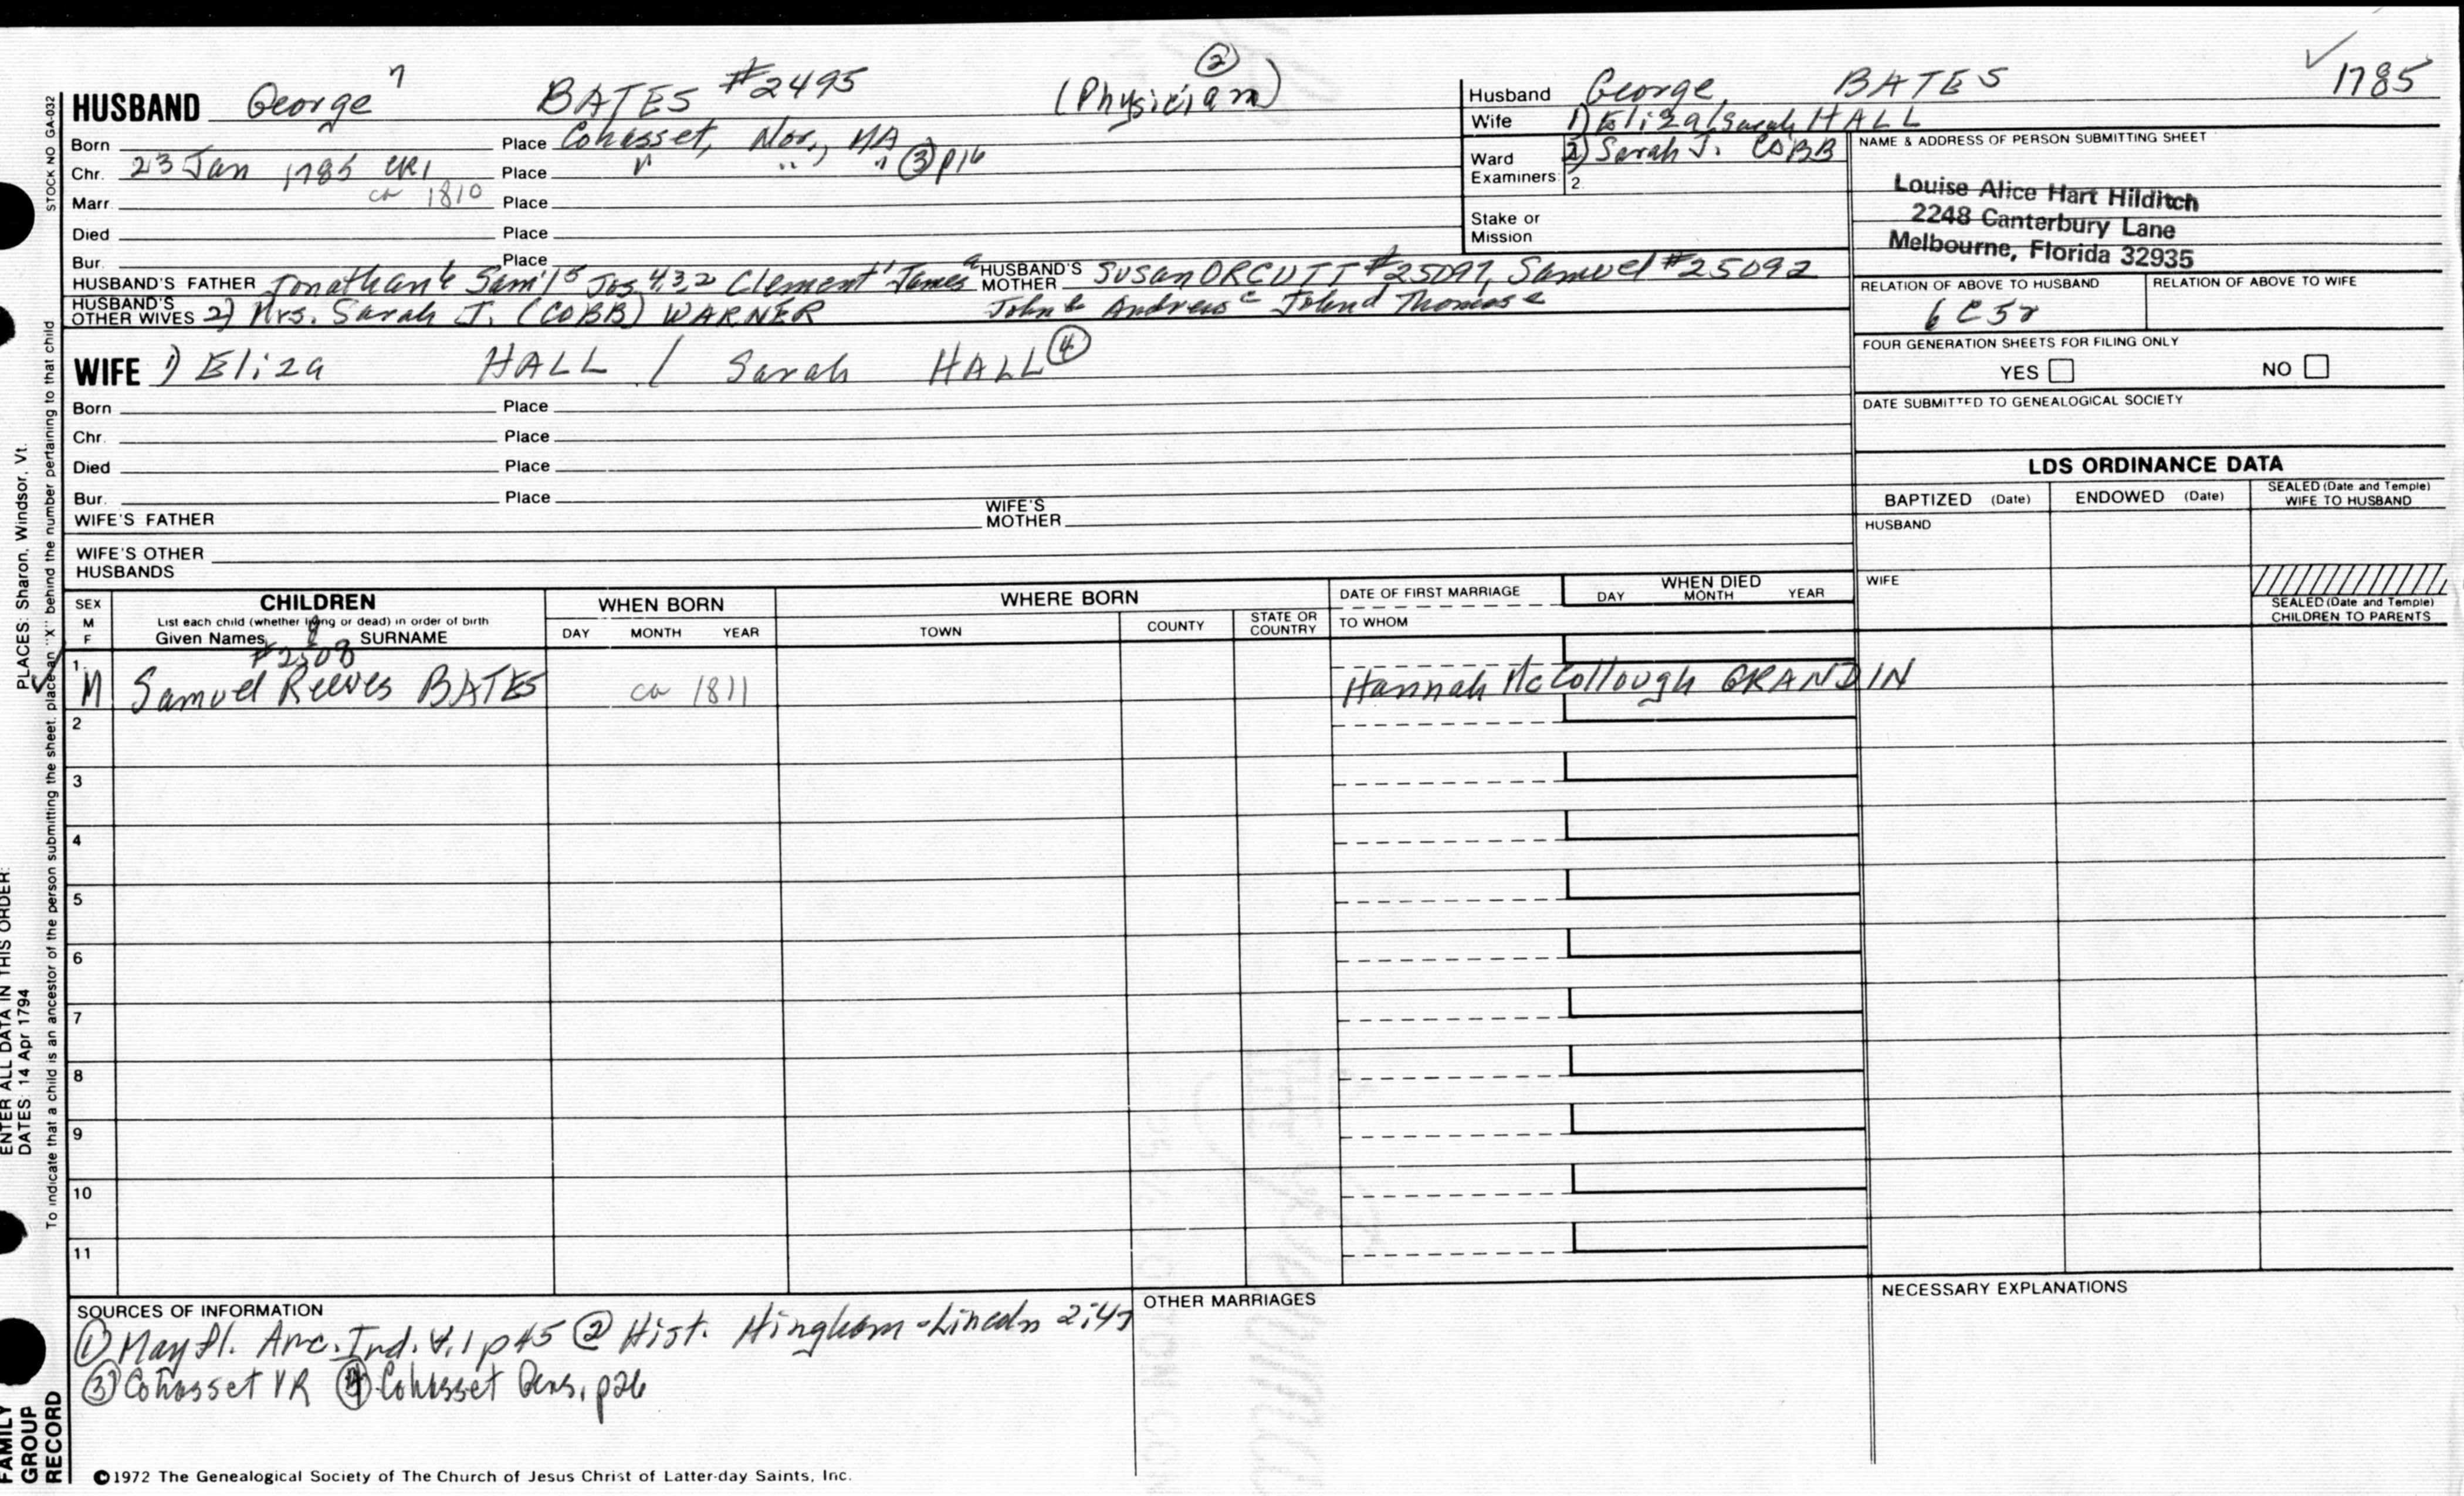 HUSBAND George 7 BATES #2495 (Physician) ②
Born Place Cohasset, Nor., MA
Chr. 23 Jan 1785 CR1 Place " " " ③ p16
Marr. ca 1810 Place
Died Place
Bur. Place
HUSBAND'S FATHER Jonathan6 Sam'l5 Jos4,3,2 Clement1 Jamesa HUSBAND'S MOTHER Susan ORCUTT #25097, Samuel #25092
HUSBAND'S OTHER WIVES 2) Mrs. Sarah J. (COBB) WARNER John Andrew Thomas
Husband George, BATES
Wife 1) Eliza/Sarah HALL
2) Sarah J. COBB
Ward
Examiners: 2.
Stake or
Mission
✓ 1785
NAME & ADDRESS OF PERSON SUBMITTING SHEET
Louise Alice Hart Hilditch
2248 Canterbury Lane
Melbourne, Florida 32935
RELATION OF ABOVE TO HUSBAND RELATION OF ABOVE TO WIFE
6C5r
FOUR GENERATION SHEETS FOR FILING ONLY
YES NO
DATE SUBMITTED TO GENEALOGICAL SOCIETY
WIFE 1) Eliza HALL / Sarah HALL ④
Born Place
Chr. Place
Died Place
Bur. Place
WIFE'S FATHER WIFE'S MOTHER
WIFE'S OTHER
HUSBANDS
LDS ORDINANCE DATA
BAPTIZED (Date) ENDOWED (Date) SEALED (Date and Temple) WIFE TO HUSBAND
HUSBAND
WIFE
SEALED (Date and Temple)
CHILDREN TO PARENTS
SEX
M
F
CHILDREN
List each child (whether living or dead) in order of birth
Given Names SURNAME
WHEN BORN
DAY MONTH YEAR
WHERE BORN
TOWN COUNTY STATE OR COUNTRY
DATE OF FIRST MARRIAGE
TO WHOM
WHEN DIED
DAY MONTH YEAR
#2508
1. M Samuel Reeves BATES ca 1811 Hannah McCollough GRANDIN
2
3
4
5
6
7
8
9
10
11
SOURCES OF INFORMATION
① Mayfl. Anc. Ind. V.1 p45 ② Hist. Hingham-Lincoln 2:47
③ Cohasset VR ④ Cohasset Gens, p26
OTHER MARRIAGES
NECESSARY EXPLANATIONS
©1972 The Genealogical Society of The Church of Jesus Christ of Latter-day Saints, Inc.
STOCK NO GA-032
To indicate that a child is an ancestor of the person submitting the sheet, place an "X" behind the number pertaining to that child
PLACES: Sharon, Windsor, Vt.
ENTER ALL DATA IN THIS ORDER:
DATES: 14 Apr 1794
FAMILY
GROUP
RECORD